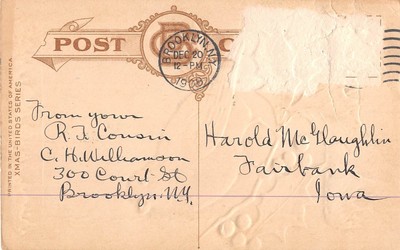 POST C
BROOKLYN, N.Y.
DEC 20
12-PM
PRINTED IN THE UNITED STATES OF AMERICA
XMAS-BIRDS SERIES
From your
R. F. Cousin
C. H. Williamson
300 Court St
Brooklyn. N.Y.
Harold McGlaughlin
Fairbank
Iowa